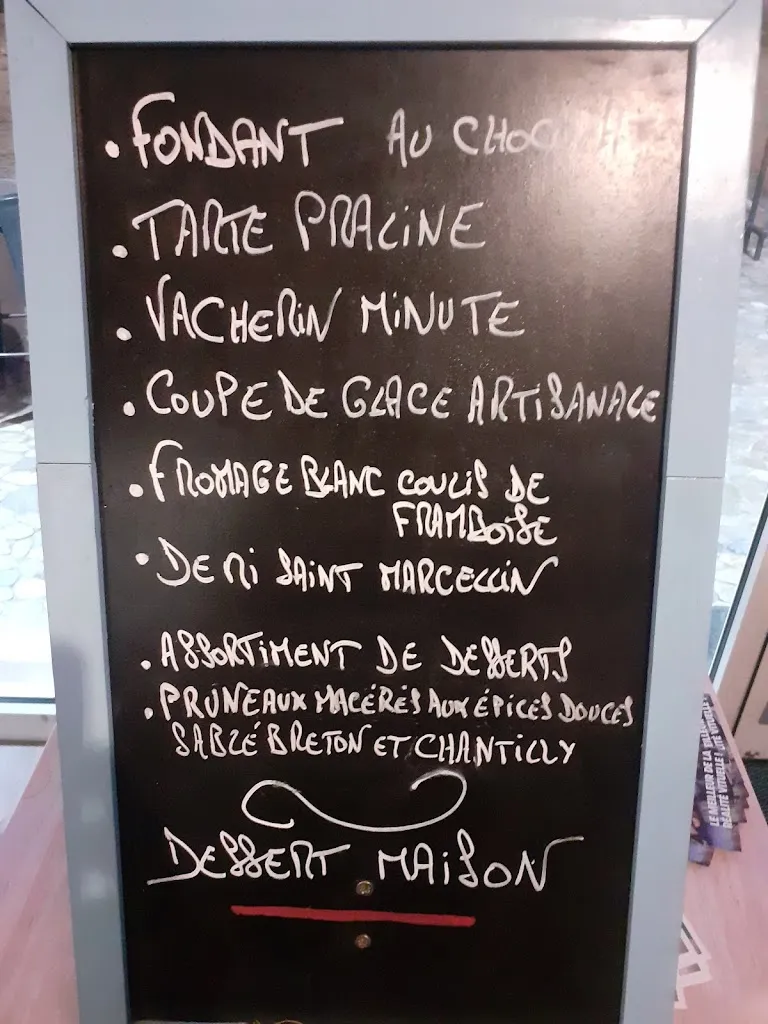 • FONDANT AU CHOC
• TARTE PRALINE
• VACHERIN MINUTE
• COUPE DE GLACE ARTISANALE
• FROMAGE BLANC COULIS DE
FRAMBOISE
• DEMI SAINT MARCELLIN
• ASSORTIMENT DE DESSERTS
• PRUNEAUX MACÉRÉS AUX ÉPICES DOUCES
SABLÉ BRETON ET CHANTILLY
DESSERT MAISON
LE MEILLEUR DE LA
RÉALITÉ VIRTUELLE !